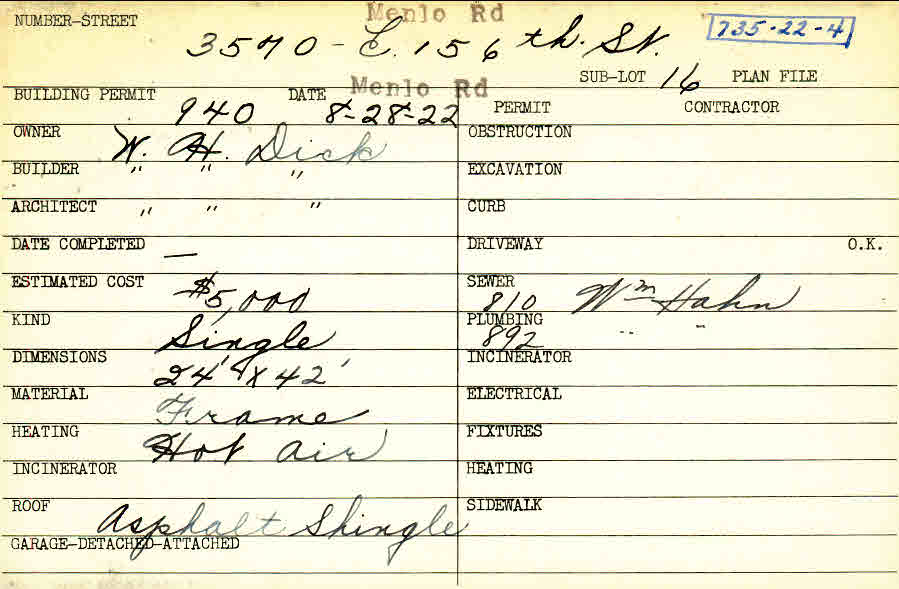 Menlo Rd
NUMBER-STREET 3570 - E. 156th. St. 735-22-4
Menlo Rd SUB-LOT 16 PLAN FILE
BUILDING PERMIT 940 DATE 8-28-22 PERMIT CONTRACTOR
OWNER W. H. Dick OBSTRUCTION
BUILDER " " " EXCAVATION
ARCHITECT " " " CURB
DATE COMPLETED — DRIVEWAY O.K.
ESTIMATED COST $5,000 SEWER 810 Wm Hahn
KIND Single PLUMBING 892 " "
DIMENSIONS 24' x 42' INCINERATOR
MATERIAL Frame ELECTRICAL
HEATING Hot Air FIXTURES
INCINERATOR HEATING
ROOF Asphalt Shingle SIDEWALK
GARAGE-DETACHED-ATTACHED